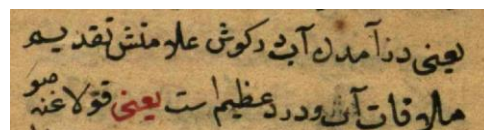 یعنی درآمدن آب در کوش علامتش تقدیم
ملاقات آب و درد عظیم است یعنی قولا عنه